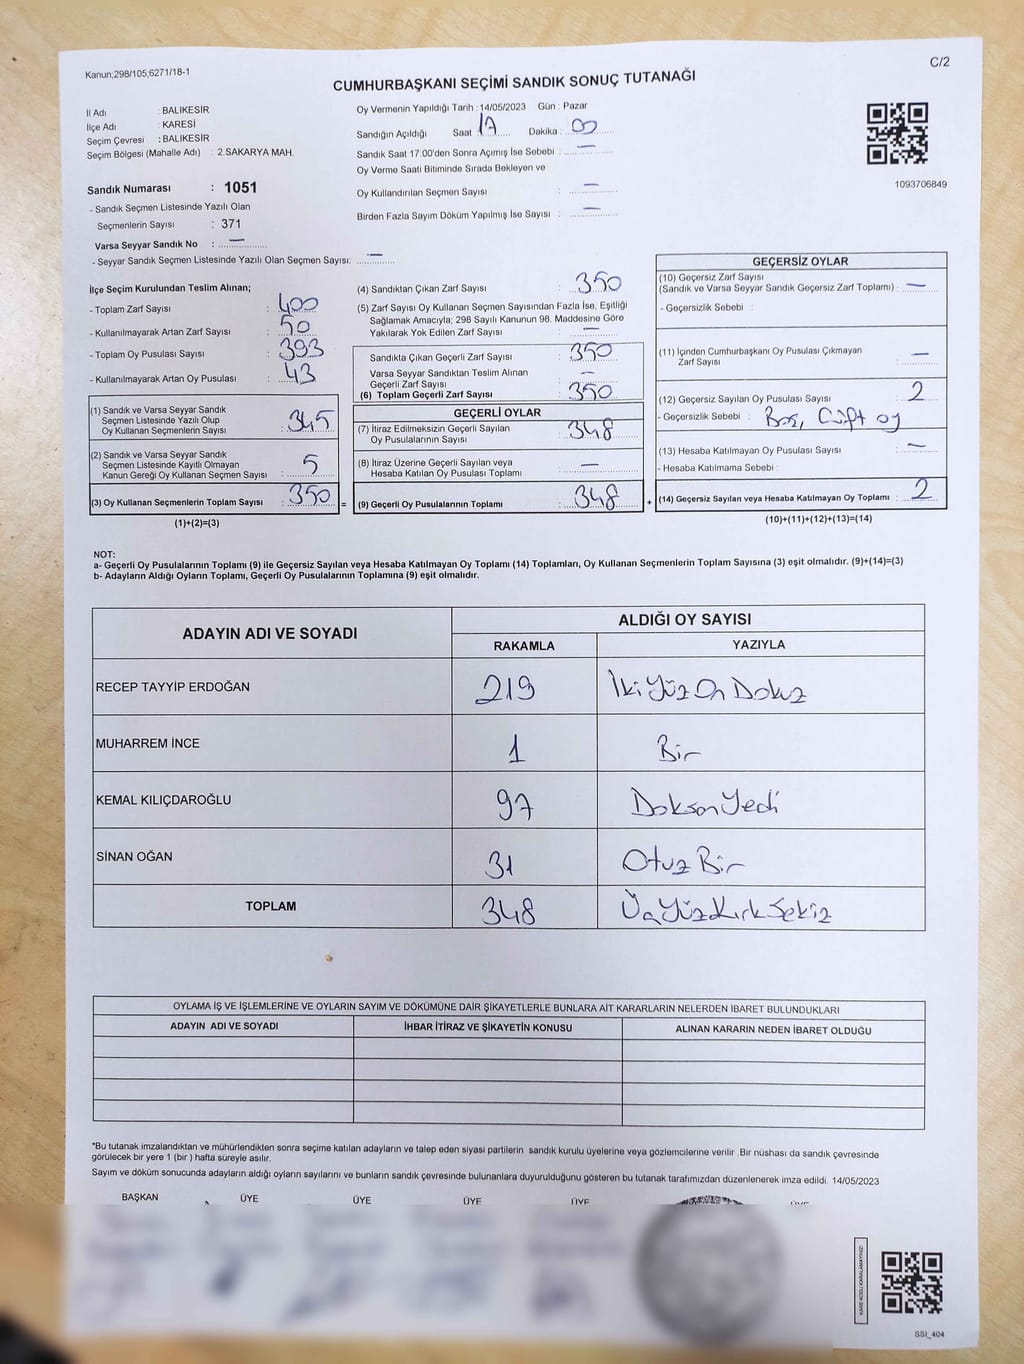 Kanun;298/105;6271/18-1
C/2
CUMHURBAŞKANI SEÇİMİ SANDIK SONUÇ TUTANAĞI
İl Adı : BALIKESİR
İlçe Adı : KARESİ
Seçim Çevresi : BALIKESİR
Seçim Bölgesi (Mahalle Adı) : 2.SAKARYA MAH.
Sandık Numarası : 1051
- Sandık Seçmen Listesinde Yazılı Olan
Seçmenlerin Sayısı : 371
Varsa Seyyar Sandık No : —
- Seyyar Sandık Seçmen Listesinde Yazılı Olan Seçmen Sayısı: —
Oy Vermenin Yapıldığı Tarih : 14/05/2023 Gün : Pazar
Sandığın Açıldığı Saat 17 Dakika : 00
Sandık Saat 17:00'den Sonra Açımış İse Sebebi : —
Oy Verme Saati Bitiminde Sırada Bekleyen ve
Oy Kullandırılan Seçmen Sayısı : —
Birden Fazla Sayım Döküm Yapılmış İse Sayısı : —
1093706849
İlçe Seçim Kurulundan Teslim Alınan;
- Toplam Zarf Sayısı : 400
- Kullanılmayarak Artan Zarf Sayısı : 50
- Toplam Oy Pusulası Sayısı : 393
- Kullanılmayarak Artan Oy Pusulası : 43
(1) Sandık ve Varsa Seyyar Sandık
Seçmen Listesinde Yazılı Olup
Oy Kullanan Seçmenlerin Sayısı : 345
(2) Sandık ve Varsa Seyyar Sandık
Seçmen Listesinde Kayıtlı Olmayan
Kanun Gereği Oy Kullanan Seçmen Sayısı : 5
(3) Oy Kullanan Seçmenlerin Toplam Sayısı : 350 =
(1)+(2)=(3)
(4) Sandıktan Çıkan Zarf Sayısı : 350
(5) Zarf Sayısı Oy Kullanan Seçmen Sayısından Fazla İse, Eşitliği
Sağlamak Amacıyla; 298 Sayılı Kanunun 98. Maddesine Göre
Yakılarak Yok Edilen Zarf Sayısı : —
Sandıkta Çıkan Geçerli Zarf Sayısı : 350
Varsa Seyyar Sandıktan Teslim Alınan
Geçerli Zarf Sayısı : —
(6) Toplam Geçerli Zarf Sayısı : 350
GEÇERLİ OYLAR
(7) İtiraz Edilmeksizin Geçerli Sayılan
Oy Pusulalarının Sayısı : 348
(8) İtiraz Üzerine Geçerli Sayılan veya
Hesaba Katılan Oy Pusulası Toplamı : —
(9) Geçerli Oy Pusulalarının Toplamı : 348 +
GEÇERSİZ OYLAR
(10) Geçersiz Zarf Sayısı
(Sandık ve Varsa Seyyar Sandık Geçersiz Zarf Toplamı) : —
- Geçersizlik Sebebi :
(11) İçinden Cumhurbaşkanı Oy Pusulası Çıkmayan
Zarf Sayısı : —
(12) Geçersiz Sayılan Oy Pusulası Sayısı : 2
- Geçersizlik Sebebi : Boş, Çift oy
(13) Hesaba Katılmayan Oy Pusulası Sayısı : —
- Hesaba Katılmama Sebebi :
(14) Geçersiz Sayılan veya Hesaba Katılmayan Oy Toplamı : 2
(10)+(11)+(12)+(13)=(14)
NOT:
a- Geçerli Oy Pusulalarının Toplamı (9) ile Geçersiz Sayılan veya Hesaba Katılmayan Oy Toplamı (14) Toplamları, Oy Kullanan Seçmenlerin Toplam Sayısına (3) eşit olmalıdır. (9)+(14)=(3)
b- Adayların Aldığı Oyların Toplamı, Geçerli Oy Pusulalarının Toplamına (9) eşit olmalıdır.
ADAYIN ADI VE SOYADI ALDIĞI OY SAYISI
RAKAMLA YAZIYLA
RECEP TAYYİP ERDOĞAN 219 İki Yüz On Dokuz
MUHARREM İNCE 1 Bir
KEMAL KILIÇDAROĞLU 97 Doksan Yedi
SİNAN OĞAN 31 Otuz Bir
TOPLAM 348 Üç Yüz Kırk Sekiz
OYLAMA İŞ VE İŞLEMLERİNE VE OYLARIN SAYIM VE DÖKÜMÜNE DAİR ŞİKAYETLERLE BUNLARA AİT KARARLARIN NELERDEN İBARET BULUNDUKLARI
ADAYIN ADI VE SOYADI İHBAR İTİRAZ VE ŞİKAYETİN KONUSU ALINAN KARARIN NEDEN İBARET OLDUĞU
*Bu tutanak imzalandıktan ve mühürlendikten sonra seçime katılan adayların ve talep eden siyasi partilerin sandık kurulu üyelerine veya gözlemcilerine verilir .Bir nüshası da sandık çevresinde
görülecek bir yere 1 (bir ) hafta süreyle asılır.
Sayım ve döküm sonucunda adayların aldığı oyların sayılarını ve bunların sandık çevresinde bulunanlara duyurulduğunu gösteren bu tutanak tarafımızdan düzenlenerek imza edildi. 14/05/2023
BAŞKAN ÜYE ÜYE ÜYE ÜYE ÜYE
KARE KODU KARALAMAYINIZ!
SSI_404